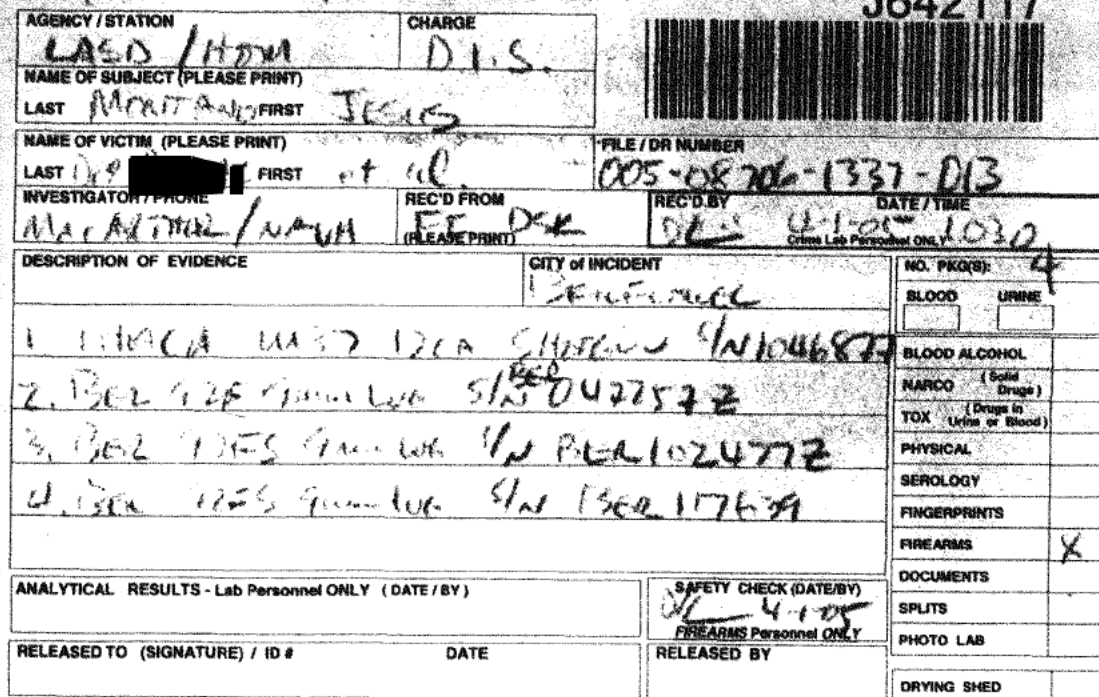 J642117
AGENCY / STATION
LASD / HOM
CHARGE
D.I.S.
NAME OF SUBJECT (PLEASE PRINT)
LAST FIRST JESUS
NAME OF VICTIM (PLEASE PRINT)
LAST FIRST et al
FILE / DR NUMBER
005-08706-1337-013
INVESTIGATOR / PHONE
MacARTHUR /
REC'D FROM
(PLEASE PRINT)
REC'D BY DATE / TIME
4-1-05 1030
Crime Lab Personnel ONLY
DESCRIPTION OF EVIDENCE
CITY of INCIDENT
NO. PKG(S): 4
BLOOD URINE
1 ITHACA M37 12GA SHOTGUN S/N 1046877
2. BER 92F 9mm S/N BER 042257Z
3. BER 92FS 9mm S/N BER102477Z
4. BER 92FS 9mm S/N
BLOOD ALCOHOL
NARCO (Solid Drugs)
TOX (Drugs in Urine or Blood)
PHYSICAL
SEROLOGY
FINGERPRINTS
FIREARMS X
DOCUMENTS
SPLITS
PHOTO LAB
DRYING SHED
ANALYTICAL RESULTS - Lab Personnel ONLY ( DATE / BY )
SAFETY CHECK (DATE/BY)
4-1-05
FIREARMS Personnel ONLY
RELEASED TO (SIGNATURE) / ID # DATE
RELEASED BY